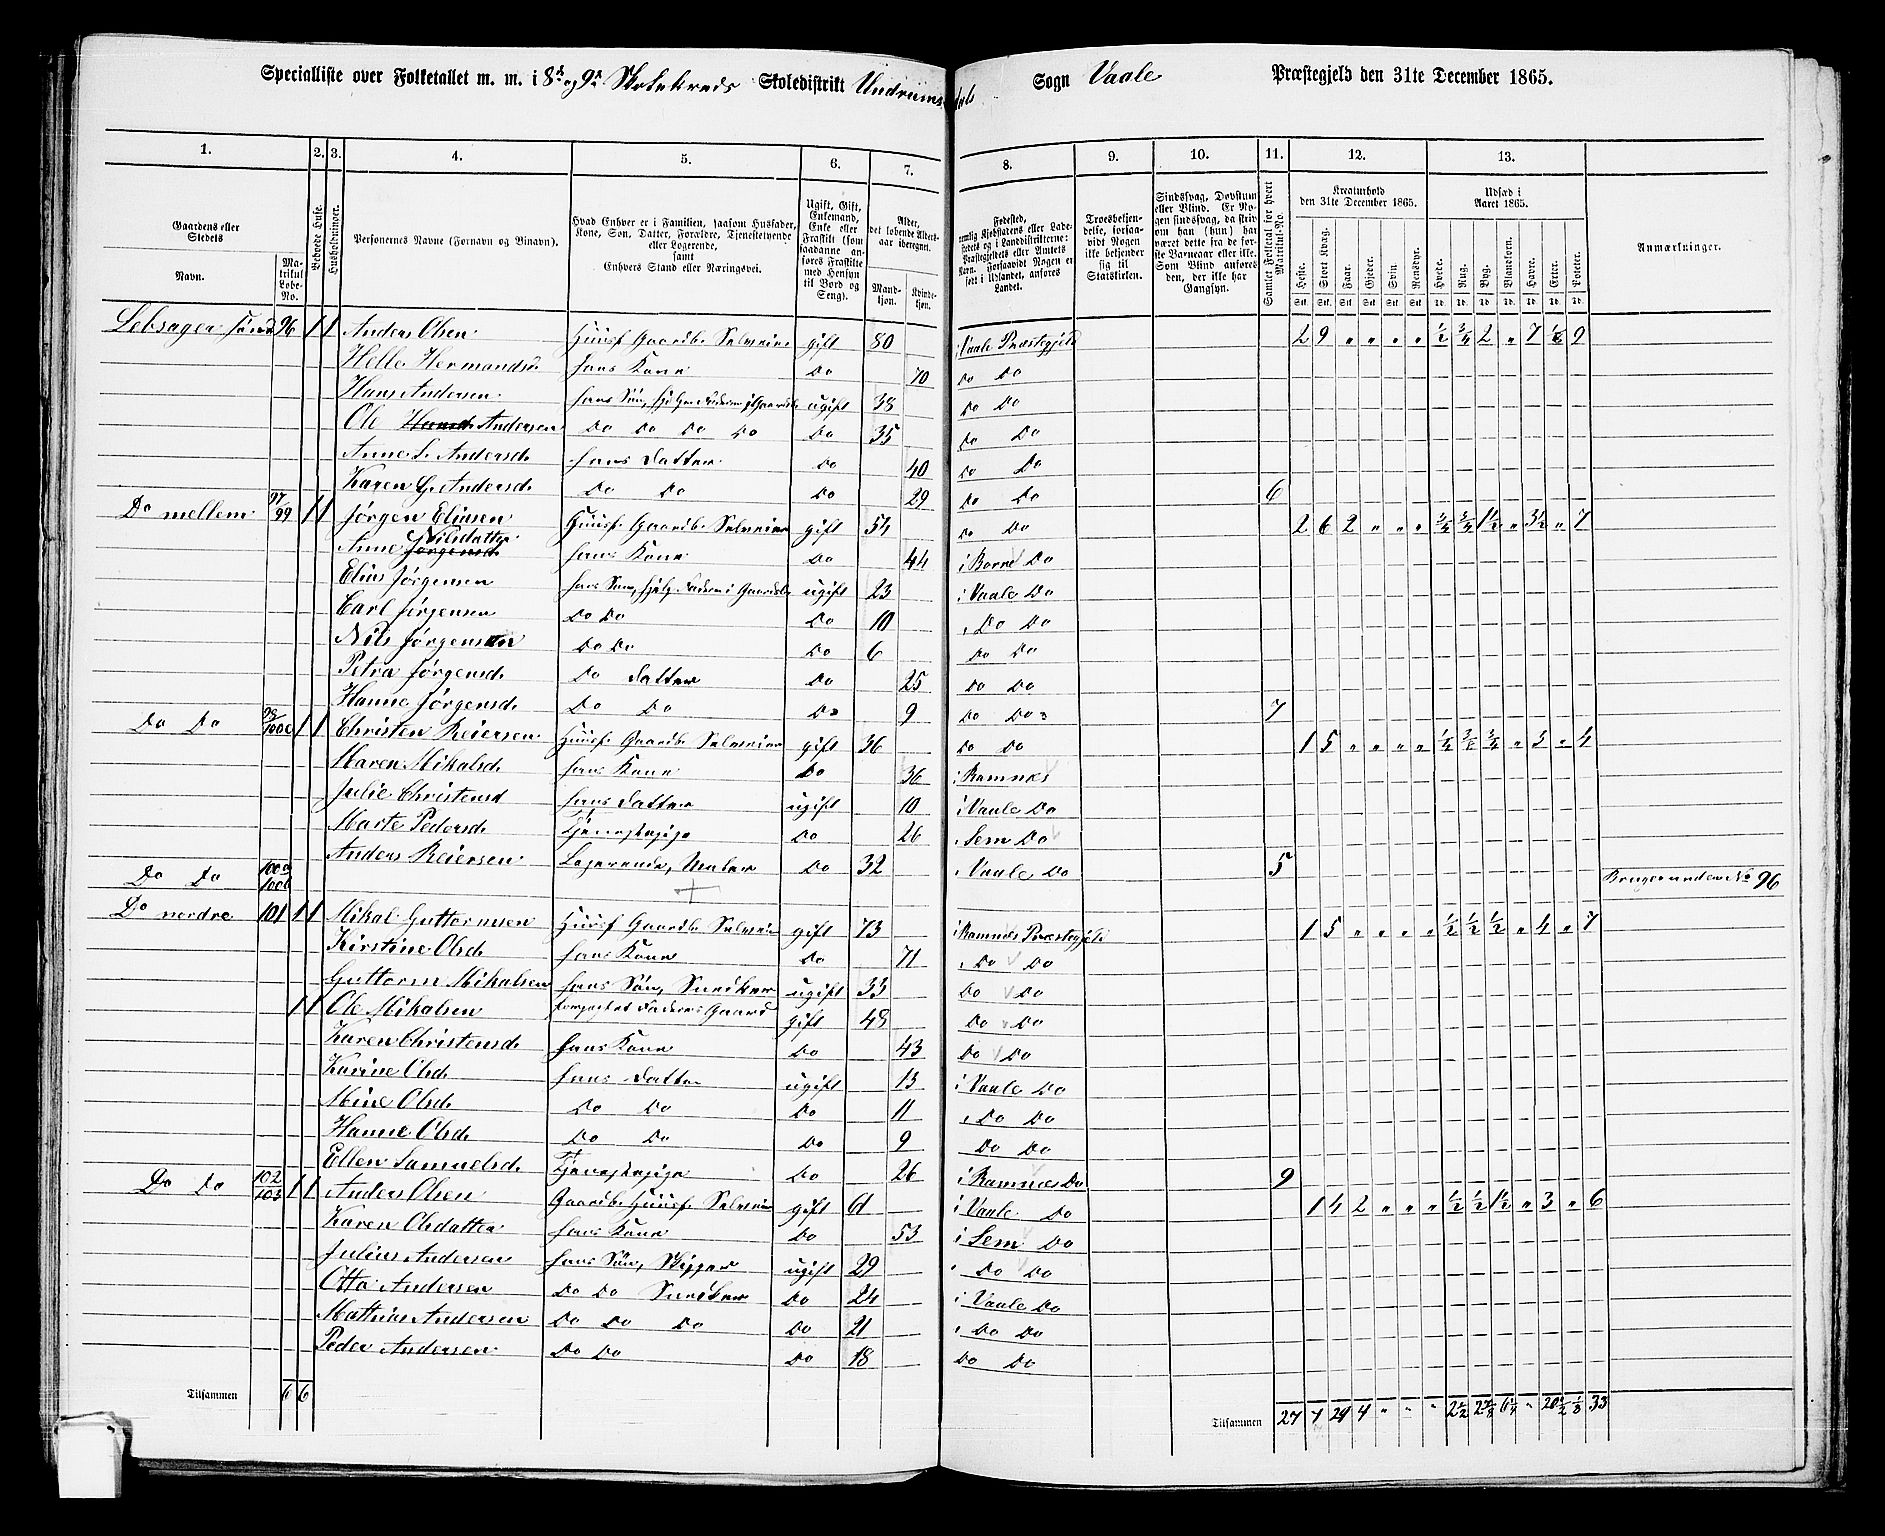 Specialliste over Folketallet m. m. i 8d og 9n Skolekreds Skoledistrikt Undrumsdals Sogn Vaale Præstegjeld den 31te December 1865.
1. 2. 3. 4. 5. 6. 7. 8. 9. 10. 11. 12. 13.
Gaardens eller Stedets
Navn. Matrikul Løbe-No.
Beboede Huse.
Husholdninger.
Personernes Navne (Fornavn og Binavn).
Hvad Enhver er i Familien, saasom Husfader, Kone, Søn, Datter, Forældre, Tjenestetyende eller Logerende, samt Enhvers Stand eller Næringsvei.
Ugift, Gift, Enkemand, Enke eller Fraskilt (som saadanne anføres Fraskilte med Hensyn til Bord og Seng).
Alder, det løbende Alders-aar iberegnet.
Mandkjøn. Kvindekjøn.
Fødested, nemlig Kjøbstadens eller Ladestedets og i Landdistrikterne: Præstegjeldets eller Amtets Navn. Forsaavidt Nogen er født i Udlandet, anføres Landet.
Troesbekjendelse, forsaavidt Nogen ikke bekjender sig til Statskirken.
Sindssvag, Døvstum eller Blind. Er Nogen sindssvag, da skriv om han (hun) har været dette fra de første Barneaar eller ikke. Som Blind anføres den, der ikke har Gangsyn.
Samlet Folketal for hvert Matrikul-No.
Kreaturhold den 31te December 1865.
Heste. Stort Kvæg. Faar. Gjeder. Svin. Rensdyr.
Udsæd i Aaret 1865.
Hvede. Rug. Byg. Blandkorn. Havre. Erter. Poteter.
Anmærkninger.
Lebsager søndr 96 1 1 Anders Olsen Huusf. Gaardb. Selveier gift 80 i Vaale Præstegjeld 2 9 " " " " 1/2 3/4 2 " 7 1/8 9
Helle Hermandsd. hans Kone Do 70 Do Do
Hans Andersen hans Søn, hjelper Faderen i Gaardsbr. ugift 38 Do Do
Ole Andersen Do Do Do Do Do 35 Do Do
Anne L. Andersd. hans Datter Do 40 Do Do
Karen G. Andersd. Do Do Do 29 Do Do 6
Do mellem 97/99 1 1 Jørgen Eliasen Huusf. Gaardb. Selveier gift 54 Do Do 2 6 2 " " " 3/4 3/4 1 1/2 " 3 1/2 " 7
Anne Nilsdatter hans Kone Do 44 i Borre Do
Elias Jørgensen hans Søn, hjelp. Faderen i Gaardsbr. ugift 23 i Vaale Do
Carl Jørgensen Do Do Do 10 " Do Do
Nils Jørgensen Do Do Do 6 Do Do
Petra Jørgensd. Do Datter Do 25 Do Do
Hanne Jørgensd. Do Do Do 9 Do Do 7
Do Do 98/100c 1 1 Christen Reiersen Huusf. Gaardb. Selveier gift 36 Do Do 1 5 " " " " 1/2 3/8 3/4 " 3 " 4
Maren Mikalsd. hans Kone Do 36 i Ramnes
Julie Christensd hans Datter ugift 10 i Vaale Do
Marte Pedersd. Tjenestepige Do 26 i Sem Do
Anders Reiersen Logerende, Maler Do 32 i Vaale Do 5
Do Do 100a 100b Bruges under No 96
Do nordre 101 1 1 Mikal Guttormsen Huusf Gaardb. Selveier gift 73 i Ramnes Præstegjeld 1 5 " " " " 1/2 1/2 1/2 " 4 " 7
Kirstine Olsd. hans Kone Do 71 " Do Do
Guttorm Mikalsen hans Søn, Snedker ugift 33 Do Do
1 1 Ole Mikalsen forpagtet Faderens Gaard gift 48 Do Do
Karen Christensd. hans Kone Do 43 Do Do
Karine Olsd. hans Datter ugift 13 i Vaale Do
Mine Olsd. Do Do Do 11 " Do Do
Hanne Olsd. Do Do Do 9 Do Do
Ellen Samuelsd. Tjenestepige Do 26 i Ramnes Do 9
Do Do 102/103 1 1 Anders Olsen Gaardb. Huusf. Selveier gift 61 i Vaale Do 1 4 2 " " " 1/2 1/2 1 1/2 " 3 " 6
Karen Olsdatter hans Kone Do 53 i Sem Do
Julius Andersen hans Søn, Skipper ugift 29 " Do Do
Otto Andersen Do Do Snedker Do 24 i Vaale Do
Mathias Andersen Do Do Do Do 21 " Do Do
Peder Andersen Do Do Do 18 Do Do
Tilsammen 6 6 Tilsammen 27 7 29 4 " " " 2 1/2 2 7/8 6 1/4 " 20 1/2 1/8 33